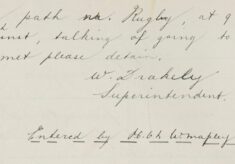 path nr. Rugby, at 9
inst, talking of going to
met please detain.
W. Drakely
Superintendent.
Entered by